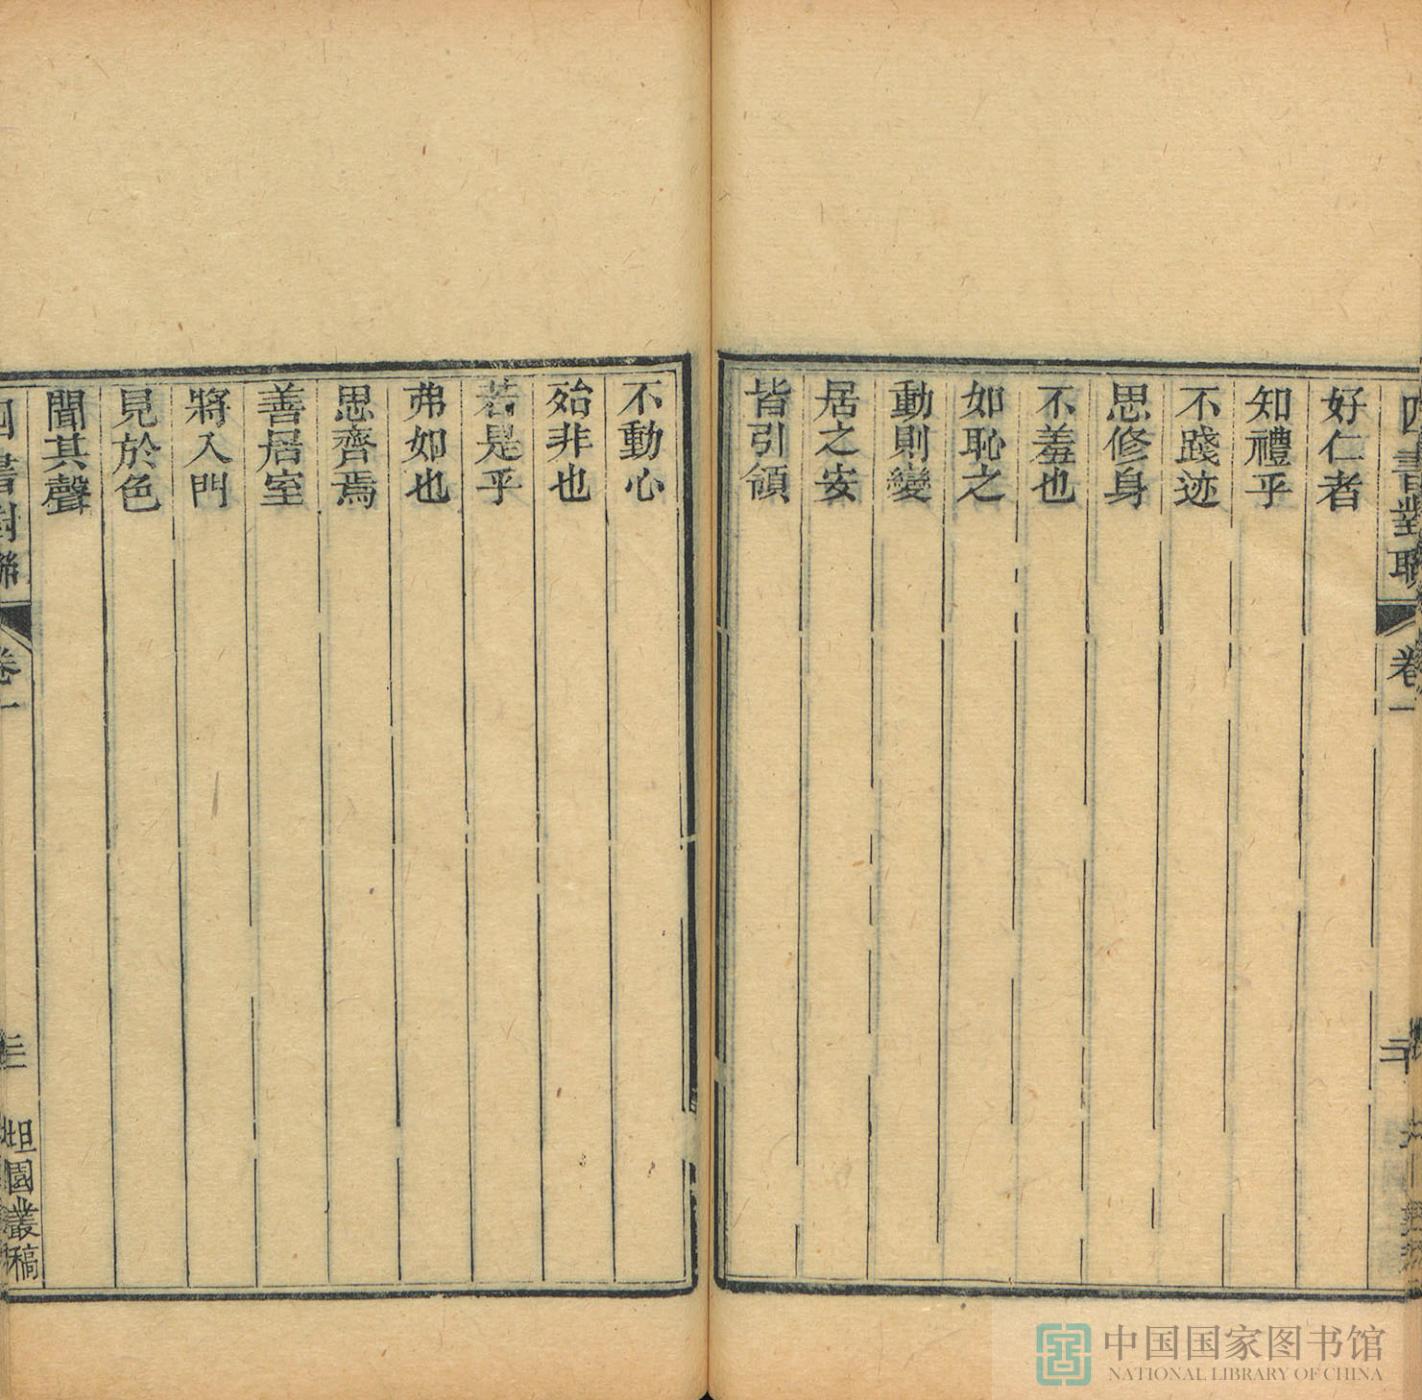 四書對聯 卷一 二
好仁者
知禮乎
不踐迹
思修身
不羞也
如恥之
動則變
居之安
皆引領
不動心
殆非也
若是乎
弗如也
思齊焉
善居室
將入門
見於色
聞其聲
四書對聯 卷一 三 坦園叢稿
中国国家图书馆
NATIONAL LIBRARY OF CHINA